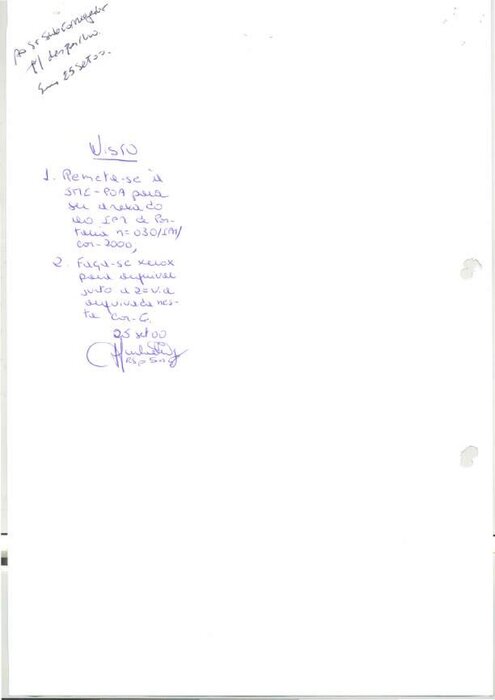 Ao Sr Subcorregedor
p/ despacho.
Em 25 set 00.
Visto
1. Remeta-se à
JME-POA para
ser anexado
ao IPM de Por-
taria nº 030/IPM/
Cor-2000,
2. Faça-se xerox
para arquivar
junto a 2ª via
arquivada nes-
ta Cor-G.
25 set 00